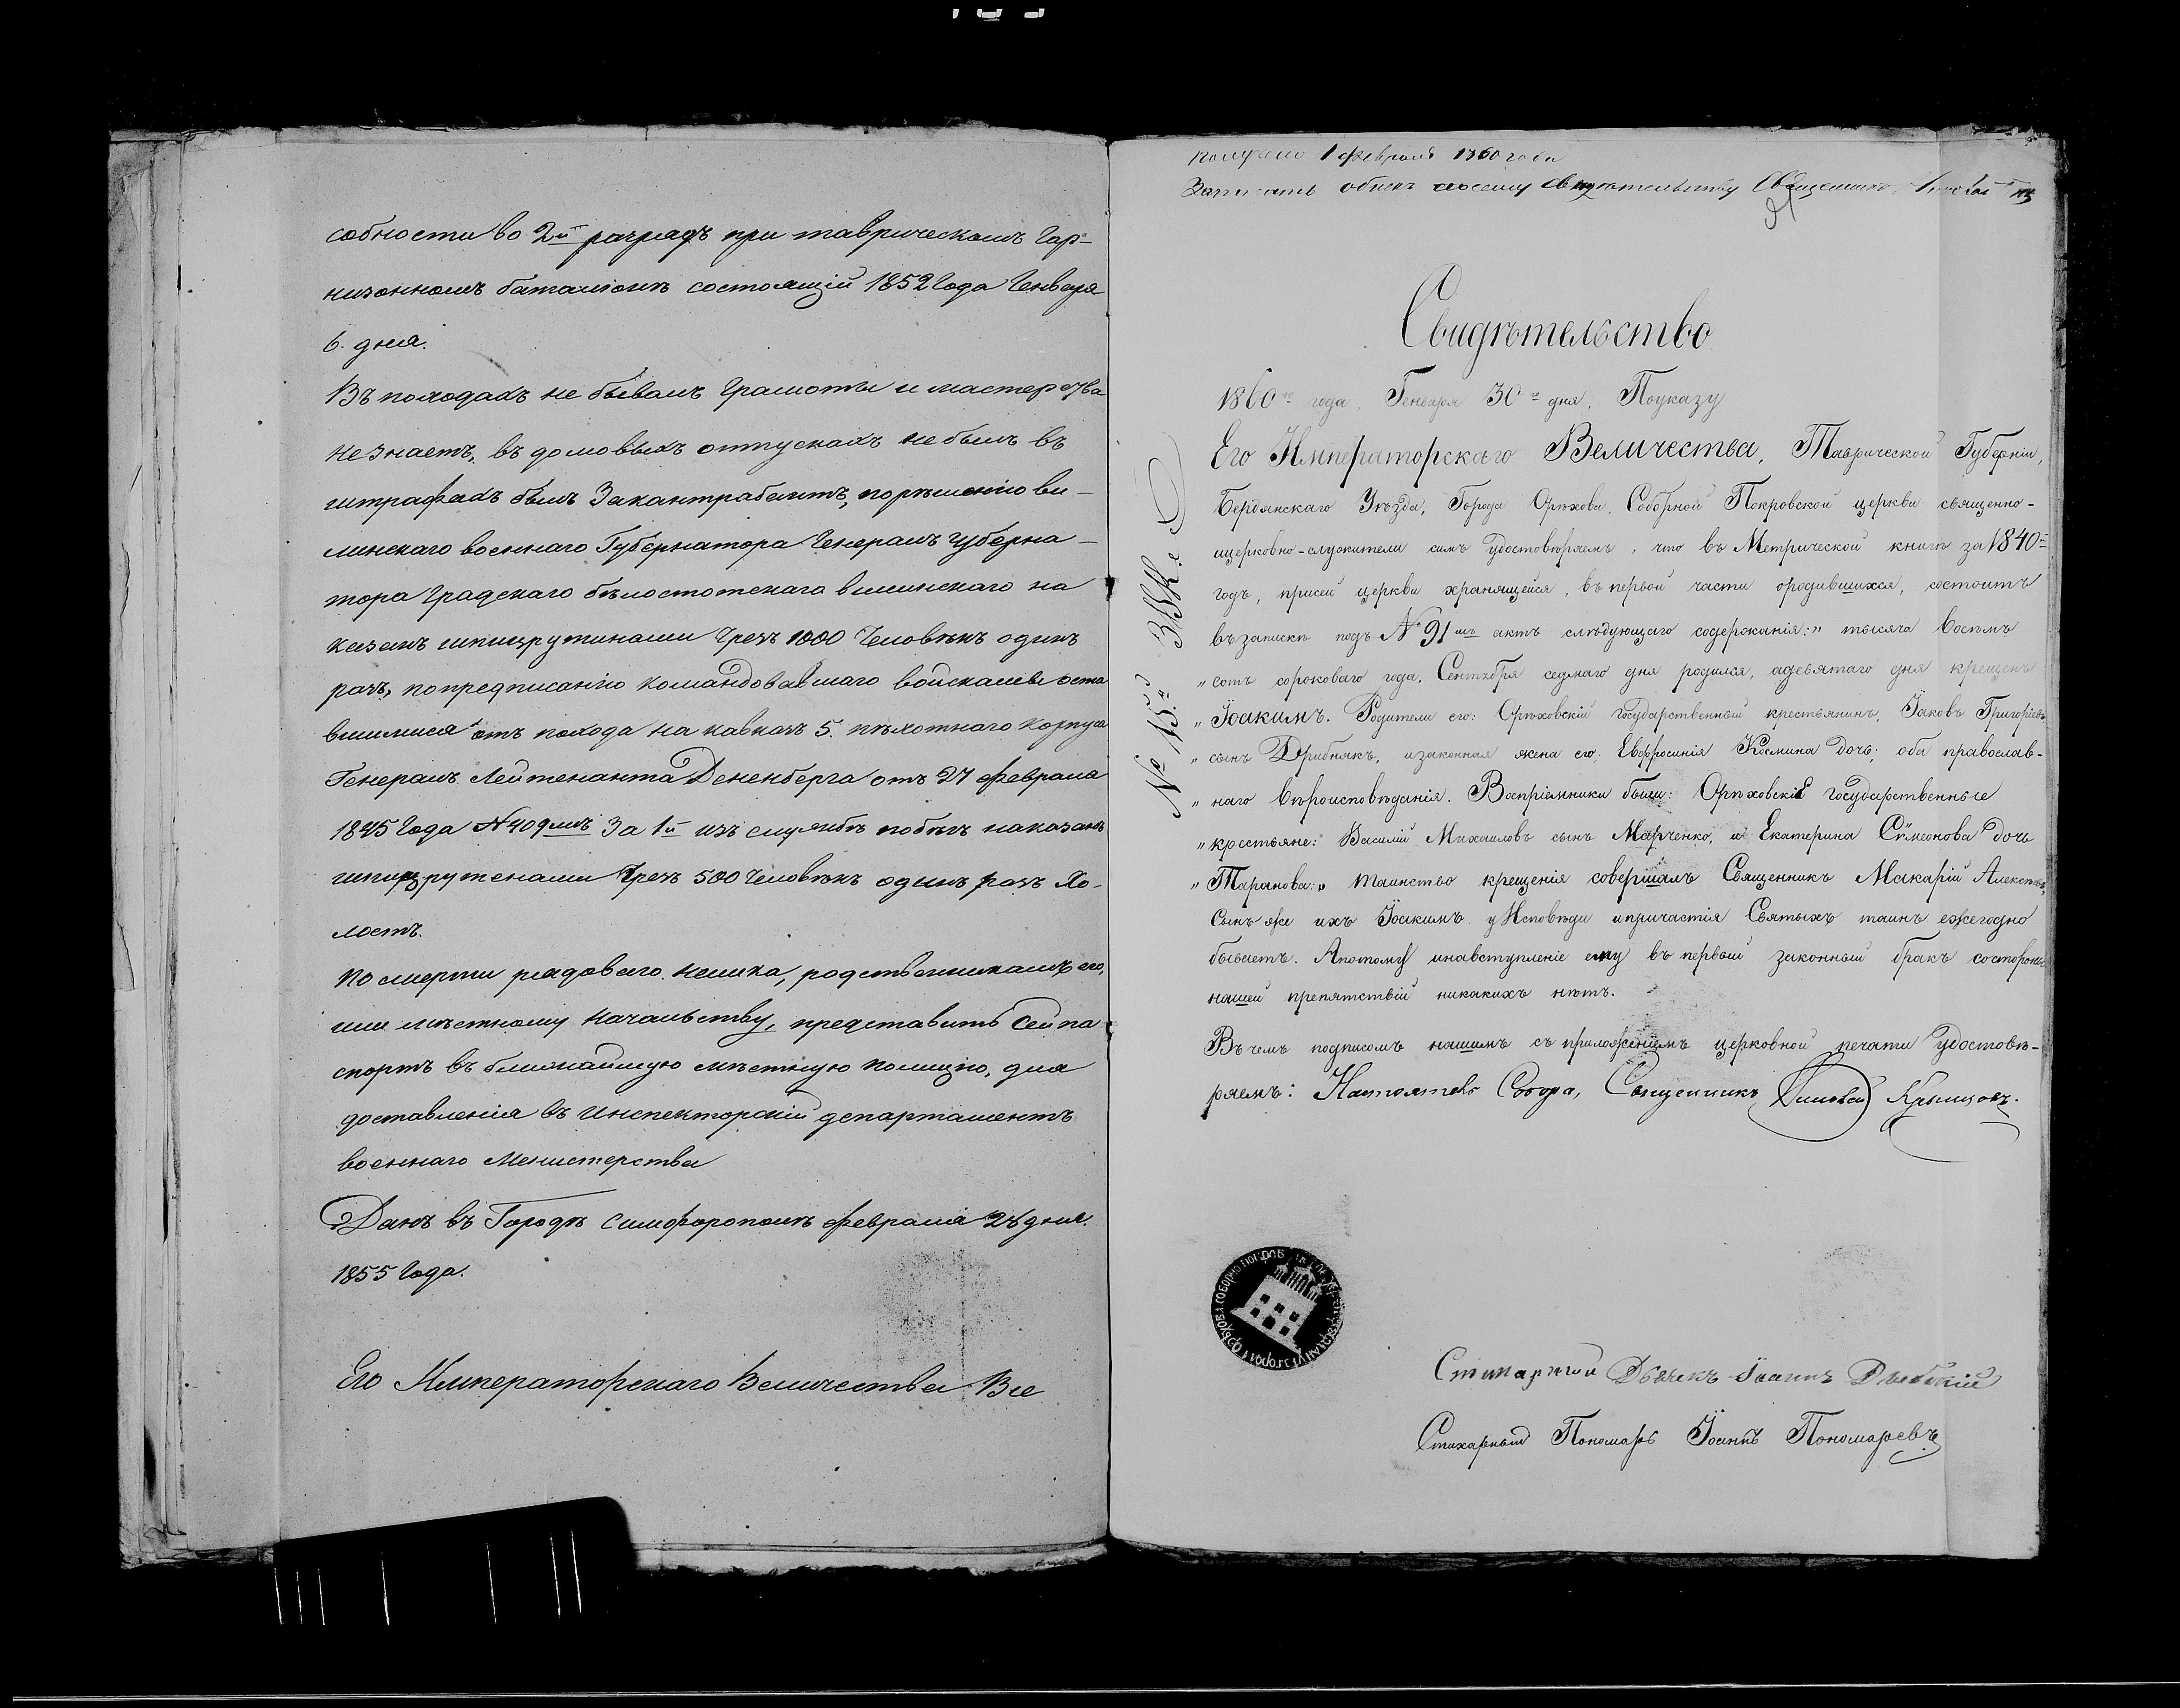 собности во 2й разрядъ при таврическомъ Гар-
низонномъ баталіонѣ состоящій 1852 Года Генваря
6. дня.
Въ походахъ не бывалъ Грамоты и мастерства
не знаетъ, въ домовыхъ отпускахъ не былъ въ
штрафахъ былъ За порѣшенію ви-
ленскаго военнаго Губернатора Генералъ Губерна-
тора Градскаго бѣлостотскаго виленскаго на
казанъ шпицрутинами Чрезъ 1000 Человѣкъ одинъ
разъ, по предписанію командовавшаго войсками оста
вшимися отъ похода на кавказъ 5. пѣхотнаго корпуса
Генералъ Лейтенанта Дененберга отъ 27 февраля
1845 Года №409мъ За 1й изъ службы побѣгъ наказанъ
шпицрутенами Чрезъ 500 Человѣкъ одинъ разъ Хо-
лостъ.
По смерти рядоваго. родственникамъ его,
или мѣстному начальству, представить Сей па
спортъ въ ближайшую мѣстную полицію, для
доставленія въ инспекторскій департаментъ
военнаго Менистерства
Данъ въ Городѣ Симферополѣ февраля 28 дня.
1855 Года.
Его Императорскаго Величества Все
Получено 1 февраля 1860 года
Записать обыскъ посему свидѣтельству Священникъ
Свидѣтельство
1860го года, Генваря 30го дня, Поуказу
Его Императорскаго Величества, Таврической Губерніи,
Бердянскаго Уѣзда, Города Орѣхова, Соборной Покровской церкви священно-
ицерковно-служители симъ удостовѣряемъ, что въ Метрической книгѣ за 1840й
годъ, присей церкви хранящейся, въ первой части ородившихся, состоитъ
възапискѣ подъ №91мъ актъ слѣдующаго содержанія: „тысяча восемь
„сотъ сороковаго года, Сентября седмаго дня родился, адевятаго дня крещенъ
„Іоакимъ. Родители его: Орѣховскій государственный крестьянинъ, Іаковъ Григоріевъ
„сынъ Дрибнякъ, изаконная жена его Евфросинія Космина дочь; оба православ-
„наго вѣроисповѣданія. Воспріемники были: Орѣховскіе государственные
„крестьяне: Василій Михаиловъ сынъ Марченко, и Екатерина Сѵмеонова дочь
„Таранова:„ Таинство крещенія совершалъ Священникъ Макарій Алексѣевъ,
Сынъ же ихъ Іоакимъ у Исповѣди ипричастія Святыхъ таинъ ежегодно
бываетъ. Апотому инавступленіе ему въ первый законный бракъ состороны
нашей препятствій никакихъ нѣтъ.
Въ чемъ подписомъ нашимъ съ приложеніемъ церковной печати удостовѣ-
ряемъ: Настоятель Собора, Священникъ Крыловъ.
№ 15й
Стихарный Дьячекъ Іоаннъ
Стихарный Пономарь Іоаннъ Пономаревъ